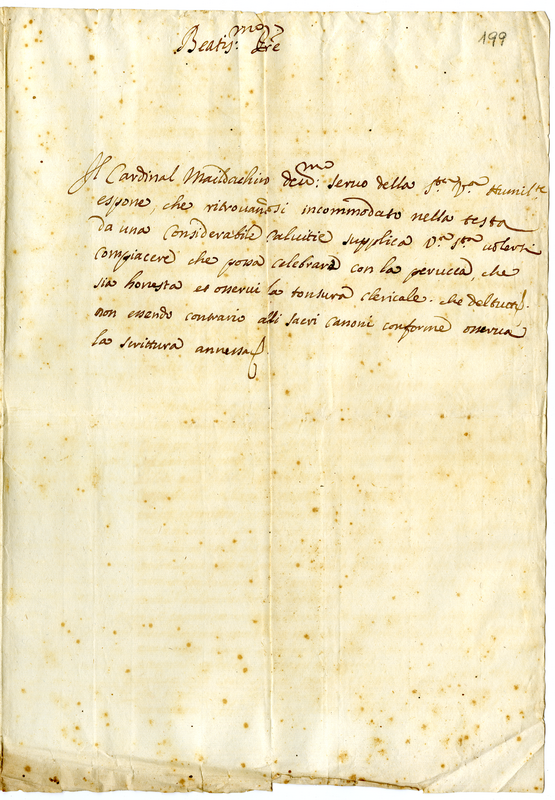 Beatis.mo Pre
199
Il Cardinal Maidachino deu.mo: seruo della S.ta V.ra Humil.te
espone, che ritrouandosi incommodato nella testa
da una considerabile caluitie supplica V.a S.ta uolersi
compiacere che possa celebrare con la perucca, che
sia honesta et osserui la tonsura clericale. che del tutto
non essendo contrario alli sacri canoni conforme osserua
la scrittura annessa